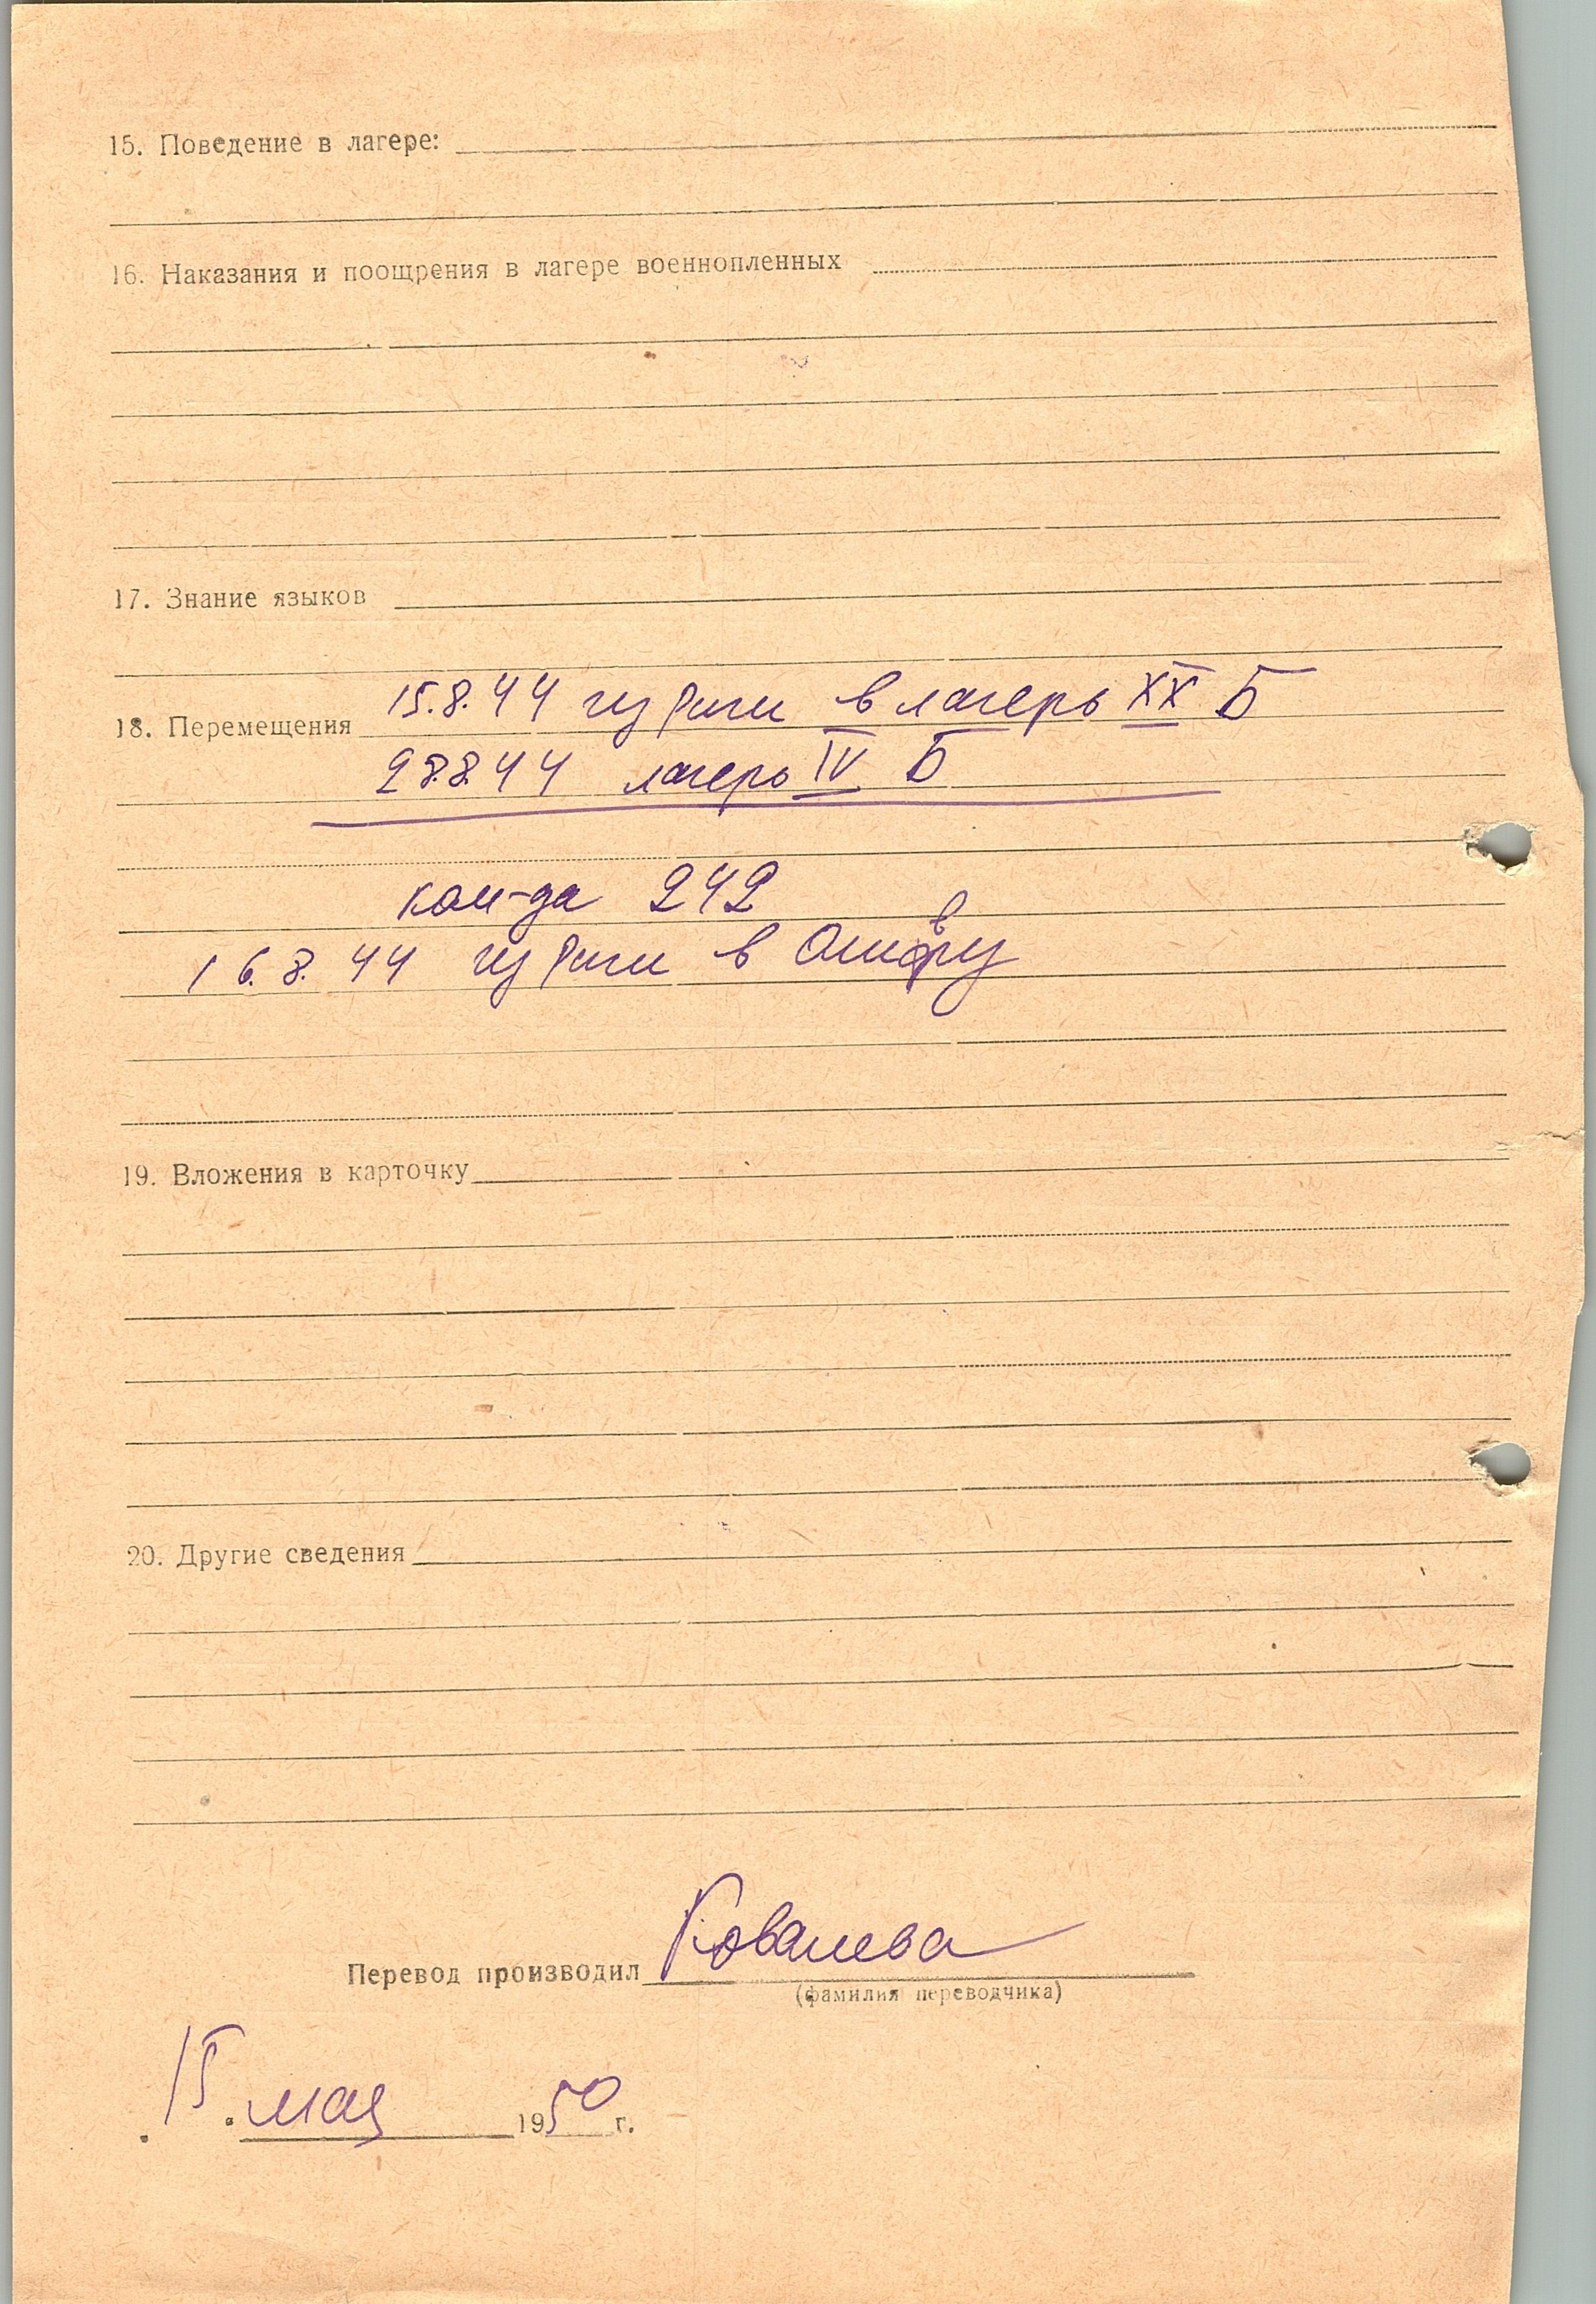 15. Поведение в лагере:
16. Наказания и поощрения в лагере военнопленных
17. Знание языков
15.8.44 из Риги в лагерь XX Б
18. Перемещения
28.8.44 лагерь IV Б
ком-да 242
16.8.44 из Риги в
19. Вложения в карточку
20. Другие сведения
Ковалева
Перевод производил
(фамилия переводчика)
15. мая 1950 г.